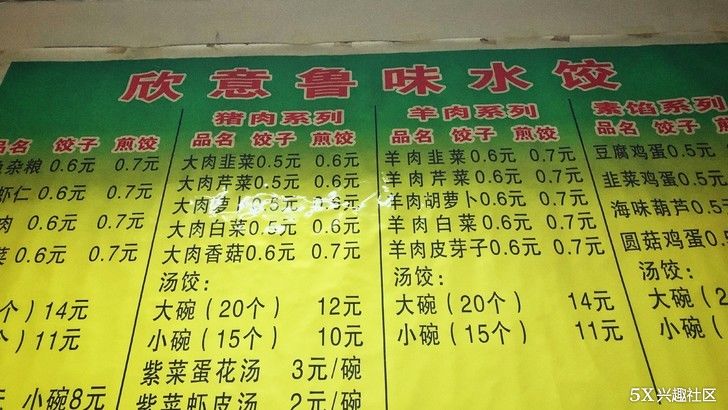 欣意鲁味水饺
品名 饺子 煎饺
杂粮 0.6元 0.7元
虾仁 0.6元 0.7元
肉 0.6元 0.7元
菜 0.6元 0.7元
个）14元
个）11元
小碗8元
猪肉系列
品名 饺子 煎饺
大肉韭菜0.5元 0.6元
大肉芹菜0.5元 0.6元
大肉萝卜 0.6元
大肉白菜0.5元 0.6元
大肉香菇0.6元 0.7元
汤饺：
大碗（20个） 12元
小碗（15个） 10元
紫菜蛋花汤 3元/碗
紫菜虾皮汤 2元/碗
羊肉系列
品名 饺子 煎饺
羊肉韭菜0.6元 0.7元
羊肉芹菜0.6元 0.7元
羊肉胡萝卜0.6元 0.7元
羊肉白菜0.6元 0.7元
羊肉皮芽子0.6元 0.7元
汤饺：
大碗（20个） 14元
小碗（15个） 11元
素馅系列
品名 饺子
豆腐鸡蛋0.5元
韭菜鸡蛋0.5元
海味葫芦0.5元
圆菇鸡蛋0.5
汤饺：
大碗（2
小碗（
5X兴趣社区